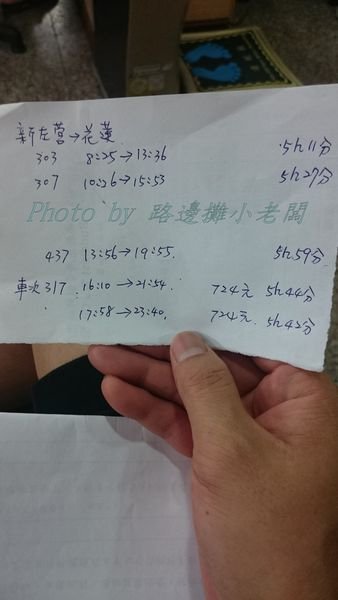 新左營→花蓮
303 8:25→13:36 5h11分
307 10:26→15:53 5h27分
Photo by 路邊攤小老闆
437 13:56→19:55. 5h59分
車次317 16:10→21:54. 724元 5h44分
17:58→23:40. 724元. 5h42分